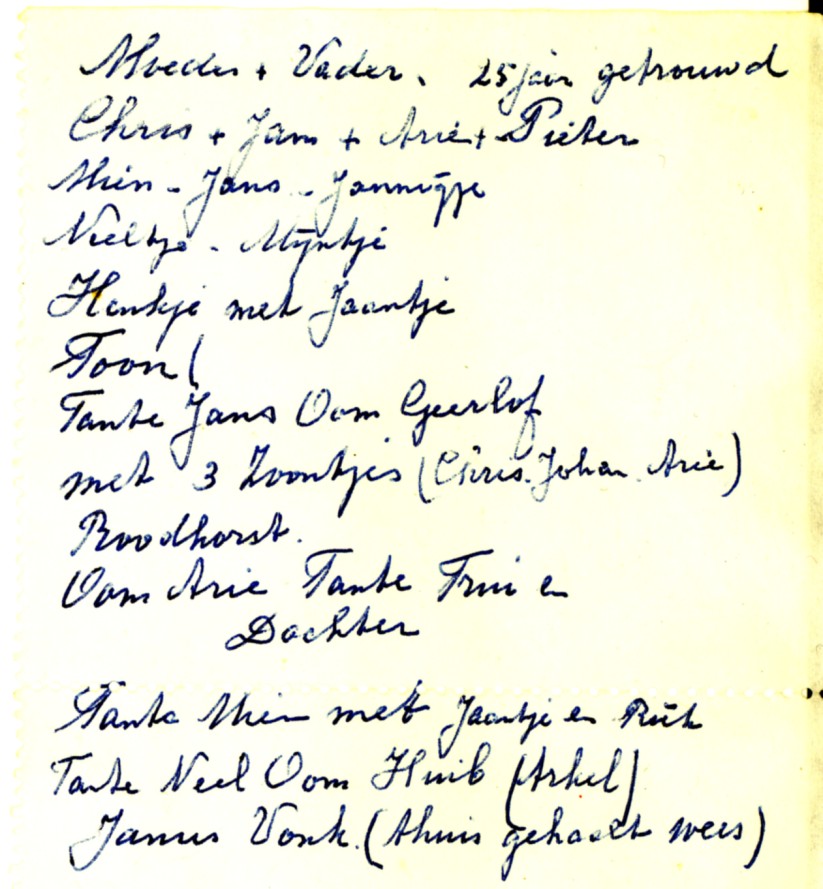 Moeder + Vader. 25 jaar getrouwd
Chris + Jam + Arie + Pieter
Mien - Jans - Jannigje
Neeltje - Mijntje
Henkje met Jaantje
Toon (
Tante Jans Oom Geerlof
met 3 Zoontjes (Chris. Johan. Arie)
Roodhorst.
Oom Arie Tante Trui en
Dochter
Tante Mien met Jaantje en
Tante Neel Oom Huib (Arkel)
Janus Vonk. (thuis gehaelt wees)